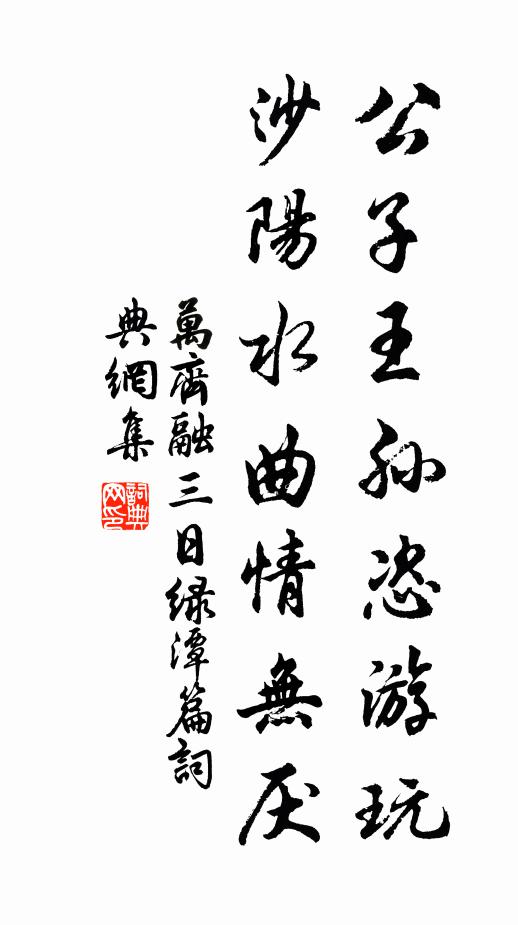 公子王孫恣游玩
沙陽水曲情無厌
萬齊融三日绿潭篇詞
典網集
詞典
网印